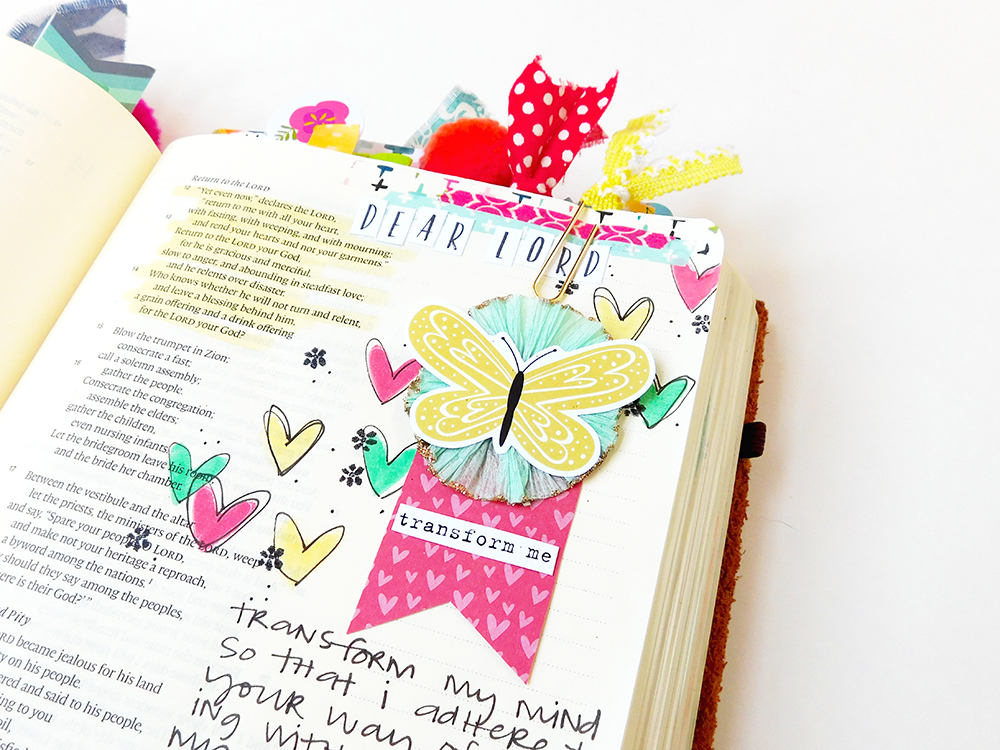 Return to the LORD
12 "Yet even now," declares the LORD,
"return to me with all your heart,
with fasting, with weeping, and with mourning;
13 and rend your hearts and not your garments."
Return to the LORD your God,
for he is gracious and merciful,
slow to anger, and abounding in steadfast love;
and he relents over disaster.
14 Who knows whether he will not turn and relent,
and leave a blessing behind him,
a grain offering and a drink offering
for the LORD your God?
15 Blow the trumpet in Zion;
consecrate a fast;
call a solemn assembly;
16 gather the people.
Consecrate the congregation;
assemble the elders;
gather the children,
even nursing infants.
Let the bridegroom leave his room,
and the bride her chamber.
17 Between the vestibule and the altar
let the priests, the ministers of the LORD, weep
and say, "Spare your people, O LORD,
and make not your heritage a reproach,
a byword among the nations.
should they say among the peoples,
is their God?'"
Pity
became jealous for his land
on his people.
and said to his people,
to you
DEAR LORD
transform me
TRANSFORM MY MIND
SO THAT i ADHERE
YOUR WAY OF
ING WITH